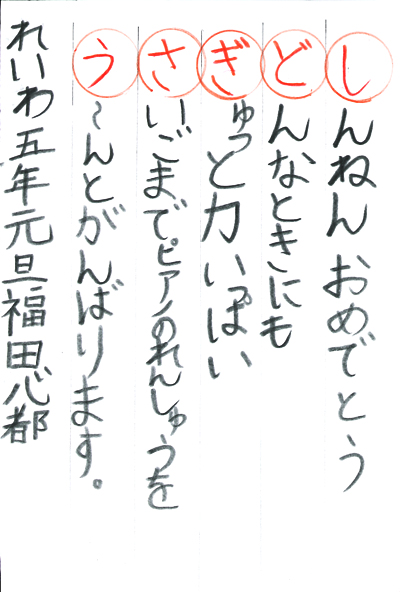 しんねんおめでとう
どんなときにも
ぎゅっと力いっぱい
さいごまでピアノのれんしゅうを
う~んとがんばります。
れいわ五年元旦福田心都